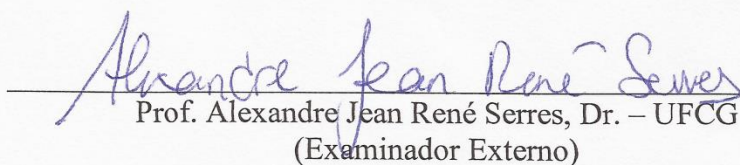 Alexandre Jean René Serres
Prof. Alexandre Jean René Serres, Dr. – UFCG
(Examinador Externo)